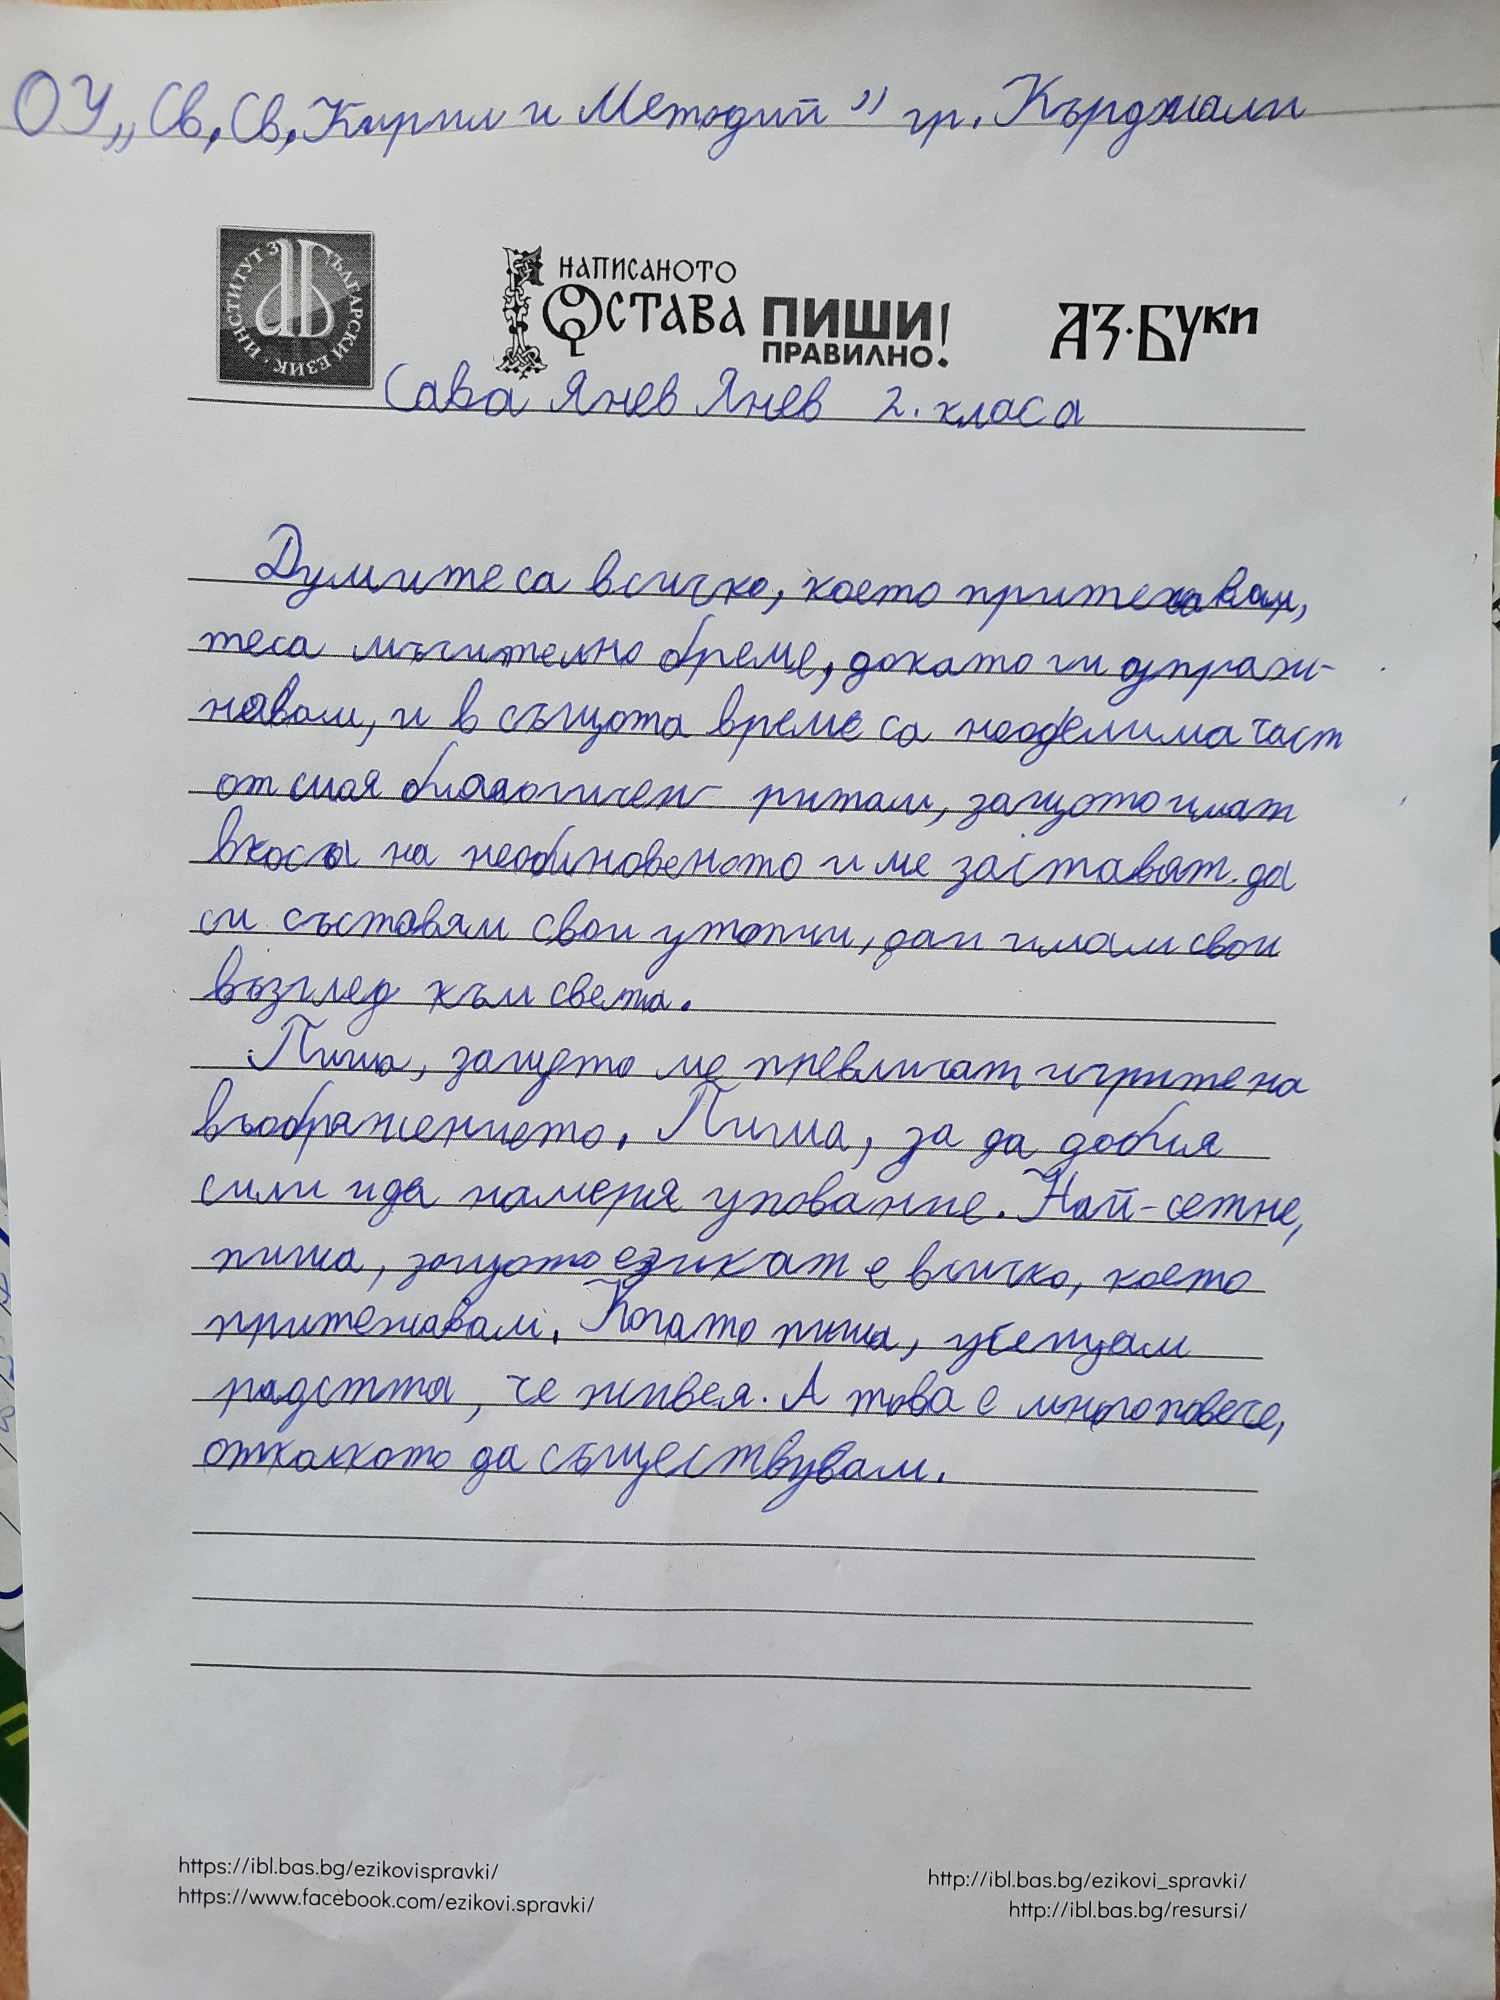 ОУ „Св. Св. Кирил и Методий" гр. Кърджали
ИНСТИТУТ ЗА БЪЛГАРСКИ ЕЗИК
НАПИСАНОТО
ОСТАВА ПИШИ
ПРАВИЛНО!
АЗ·БУКИ
Сава Янев Янев 2. класа
Думите са всичко, което притежавам,
те са мъчително бреме, докато ги упраж-
нявам, и в същото време са неоделима част
от моя биологичен ритъм, защото имат
вкоса на необикновеното и ме заставят да
си съставям свои утопии, да и имам свои
възглед към света.
Пиша, защото ме превличат игрите на
въображението. Пиша, за да добия
сили и да намеря упование. Най-сетне,
пиша, защото езикат е всичко, което
притежавам. Когато пиша, усещам
радстта, че живея. А това е много повече,
отколкото да съществувам.
https://ibl.bas.bg/ezikovispravki/
https://www.facebook.com/ezikovi.spravki/
http://ibl.bas.bg/ezikovi_spravki/
http://ibl.bas.bg/resursi/